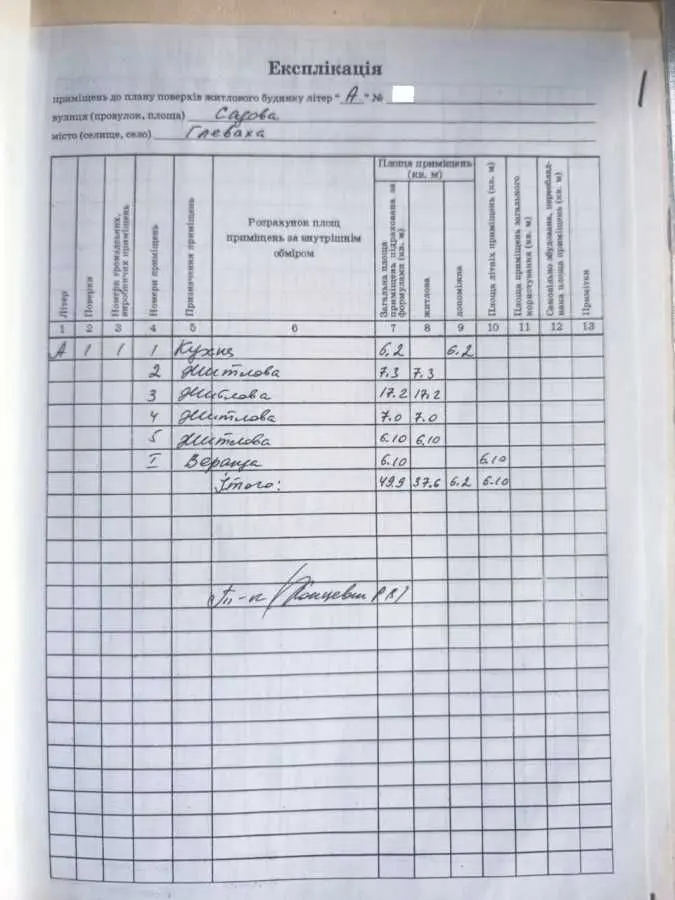 Експлікація
приміщень до плану поверхів житлового будинку літер "А" №
вулиця (провулок, площа) Садова
місто (селище, село) Глеваха
Літер
Поверхи
Номери громадських, виробничих приміщень
Номери приміщень
Призначення приміщень
Розрахунок площ
приміщень за внутрішнім
обміром
Площа приміщень
(кв. м)
Загальна площа приміщень підрахована за формулами (кв. м)
житлова
допоміжна
Площа літніх приміщень (кв. м)
Площа приміщень загального користування (кв. м)
Самовільно збудована, переобладнана площа приміщень (кв. м)
Примітки
1 2 3 4 5 6 7 8 9 10 11 12 13
А 1 1 1 Кухня 6.2 6.2
2 Житлова 7.3 7.3
3 Житлова 17.2 17.2
4 Житлова 7.0 7.0
5 Житлова 6.10 6.10
I Веранда 6.10 6.10
Ітого: 49.9 37.6 6.2 6.10